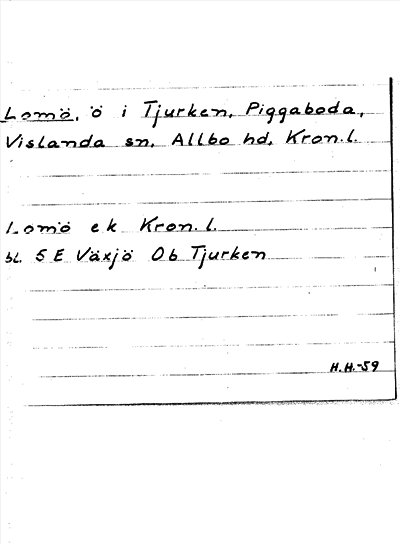 Lomö, ö i Tjurken, Piggaboda,
Vislanda sn, Allbo hd, Kron.l.
Lomö ek Kron. l.
bl. 5 E Växjö Ob Tjurken
H.H.-59